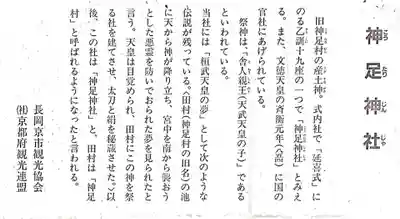 神足神社
こうたりじんじゃ
旧神足村の産土神。式内社で「延喜式」に
のる乙訓十九座の一つで「神足神社」とみえ
る。また、文徳天皇の斉衡元年(八五四)に国の
官社にあげられている。
祭神は「舎人親王(天武天皇の子)」である
といわれている。
当社には「桓武天皇の夢」として次のような
伝説が残っている。「田村(神足村の旧名)の池
に天から神が降り立ち、宮中を南から襲おう
とした悪霊を防いでおられた夢を見られたと
言う。天皇は目覚められ、田村にこの神を祭
る社を建てさせ、太刀と絹を秘蔵させた。」以
後、この社は「神足神社」と、田村は「神足
村」と呼ばれるようになったと言われる。
長岡京市観光協会
㈳京都府観光連盟